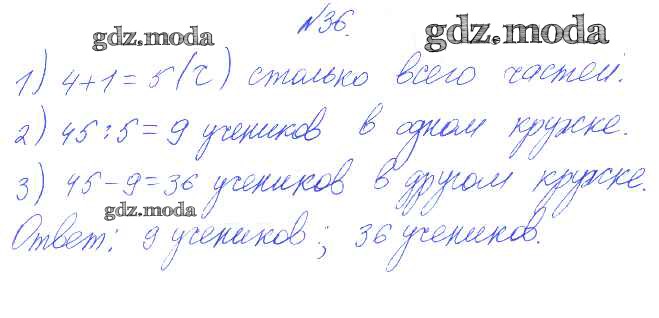 №36.
gdz.moda
gdz.moda
1) 4+1=5(ч) столько всего частей.
2) 45:5=9 учеников в одном кружке.
3) 45-9=36 учеников в другом кружке.
gdz.moda
Ответ: 9 учеников; 36 учеников.